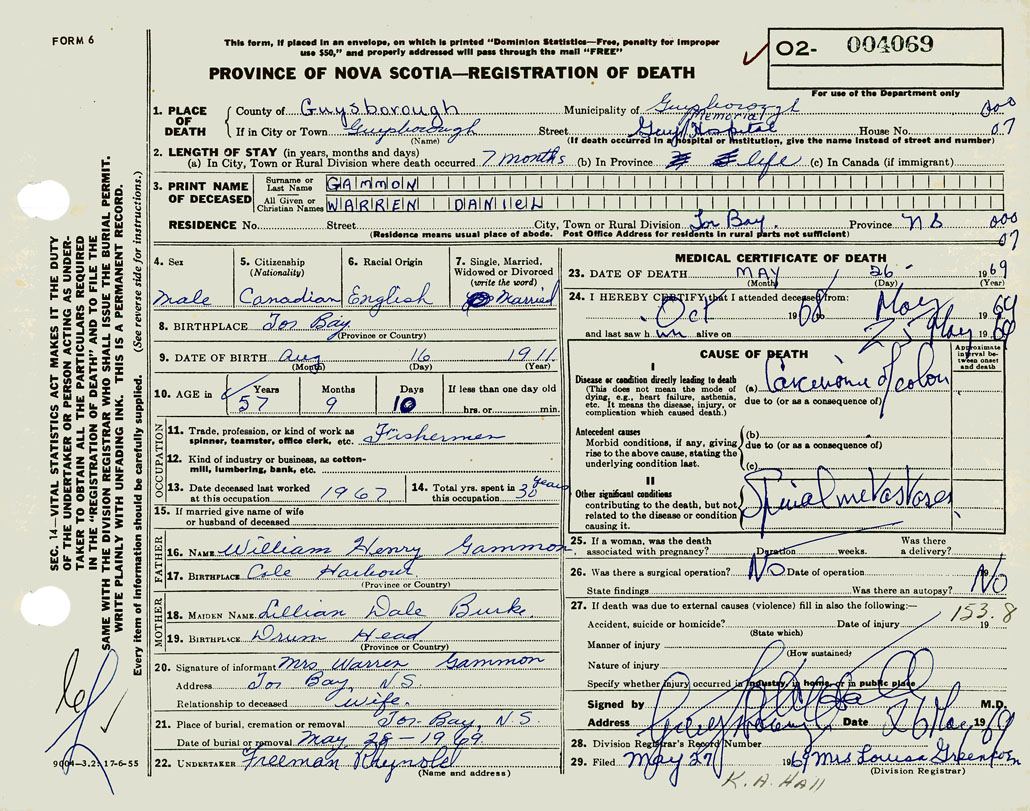 FORM 6
This form, if placed in an envelope, on which is printed "Dominion Statistics—Free, penalty for improper
use $50," and properly addressed will pass through the mail "FREE"
O2- 004069
PROVINCE OF NOVA SCOTIA—REGISTRATION OF DEATH
For use of the Department only
1. PLACE OF DEATH
County of Guysborough Municipality of Guysborough 000
If in City or Town Guysborough Street Guys Memorial Hospital House No. 07
(Name) (If death occurred in a hospital or institution, give the name instead of street and number)
2. LENGTH OF STAY (in years, months and days)
(a) In City, Town or Rural Division where death occurred 7 months (b) In Province life (c) In Canada (if immigrant)
3. PRINT NAME OF DECEASED
Surname or Last Name GAMMON
All Given or Christian Names WARREN DANIEL
RESIDENCE No. Street City, Town or Rural Division Tor Bay. Province N S 000
(Residence means usual place of abode. Post Office Address for residents in rural parts not sufficient) 07
4. Sex
Male
5. Citizenship
(Nationality)
Canadian
6. Racial Origin
English
7. Single, Married,
Widowed or Divorced
(write the word)
Married
8. BIRTHPLACE Tor Bay
(Province or Country)
9. DATE OF BIRTH Aug 16 1911
(Month) (Day) (Year)
10. AGE in Years 57 Months 9 Days 10 If less than one day old
hrs. or min.
OCCUPATION
11. Trade, profession, or kind of work as
spinner, teamster, office clerk, etc. Fishermen
12. Kind of industry or business, as cotton-
mill, lumbering, bank, etc.
13. Date deceased last worked
at this occupation 1967
14. Total yrs. spent in
this occupation 30 years
15. If married give name of wife
or husband of deceased
FATHER
16. NAME William Henry Gammon
17. BIRTHPLACE Cole Harbour
(Province or Country)
MOTHER
18. MAIDEN NAME Lillian Dale Burke
19. BIRTHPLACE Drum Head
(Province or Country)
20. Signature of informant Mrs Warren Gammon
Address Tor Bay N.S.
Relationship to deceased wife.
21. Place of burial, cremation or removal Tor Bay, N.S.
Date of burial or removal May 28-1969
22. UNDERTAKER Freeman
(Name and address)
MEDICAL CERTIFICATE OF DEATH
23. DATE OF DEATH MAY 26 1969
(Month) (Day) (Year)
24. I HEREBY CERTIFY that I attended deceased from:
Oct 1968 May 1969
and last saw him alive on 25 May 1969
CAUSE OF DEATH
Approximate interval between onset and death
I
Disease or condition directly leading to death
(This does not mean the mode of
dying, e.g., heart failure, asthenia,
etc. It means the disease, injury, or
complication which caused death.)
(a) Carcinoma of colon
due to (or as a consequence of)
Antecedent causes
Morbid conditions, if any, giving
rise to the above cause, stating the
underlying condition last.
(b)
due to (or as a consequence of)
(c)
II
Other significant conditions
contributing to the death, but not
related to the disease or condition
causing it.
Spinal metastases
25. If a woman, was the death
associated with pregnancy? Duration weeks. Was there
a delivery?
26. Was there a surgical operation? No Date of operation 19
State findings Was there an autopsy? No
27. If death was due to external causes (violence) fill in also the following:— 153.8
Accident, suicide or homicide? Date of injury 19
(State which)
Manner of injury
(How sustained)
Nature of injury
Specify whether injury occurred in industry, in home, or in public place
Signed by M.D.
Address Guysborough Date 26 May 1969
28. Division Registrar's Record Number
29. Filed May 27 1969 Mrs Louisa
(Division Registrar)
K. A. Hall
SEC. 14—VITAL STATISTICS ACT MAKES IT THE DUTY
OF THE UNDERTAKER OR PERSON ACTING AS UNDER-
TAKER TO OBTAIN ALL THE PARTICULARS REQUIRED
IN THE "REGISTRATION OF DEATH" AND TO FILE THE
SAME WITH THE DIVISION REGISTRAR WHO SHALL ISSUE THE BURIAL PERMIT.
WRITE PLAINLY WITH UNFADING INK. THIS IS A PERMANENT RECORD.
Every item of information should be carefully supplied. (See reverse side for instructions.)
9004-3.2: 17-6-55